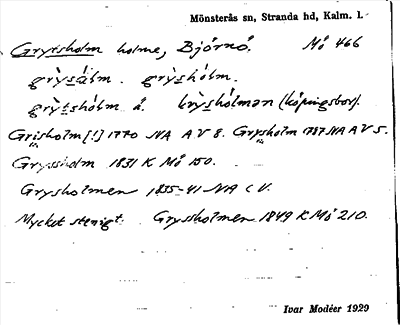 Mönsterås sn, Stranda hd, Kalm. l.
Grytsholm holme, Björnö. Mö 466
grỳsálm. grỳshólm.
grỳtshólm å. krỳshólman (köpingsbor).
Grisholm [!] 1770 NA A V 8. Grysholm 1787 NA A V 5.
Gryssholm 1831 K Mö 150.
Grysholmen 1835-41 NA C V.
Mycket stenigt. Gryssholmen 1849 K Mö 210.
Ivar Modéer 1929